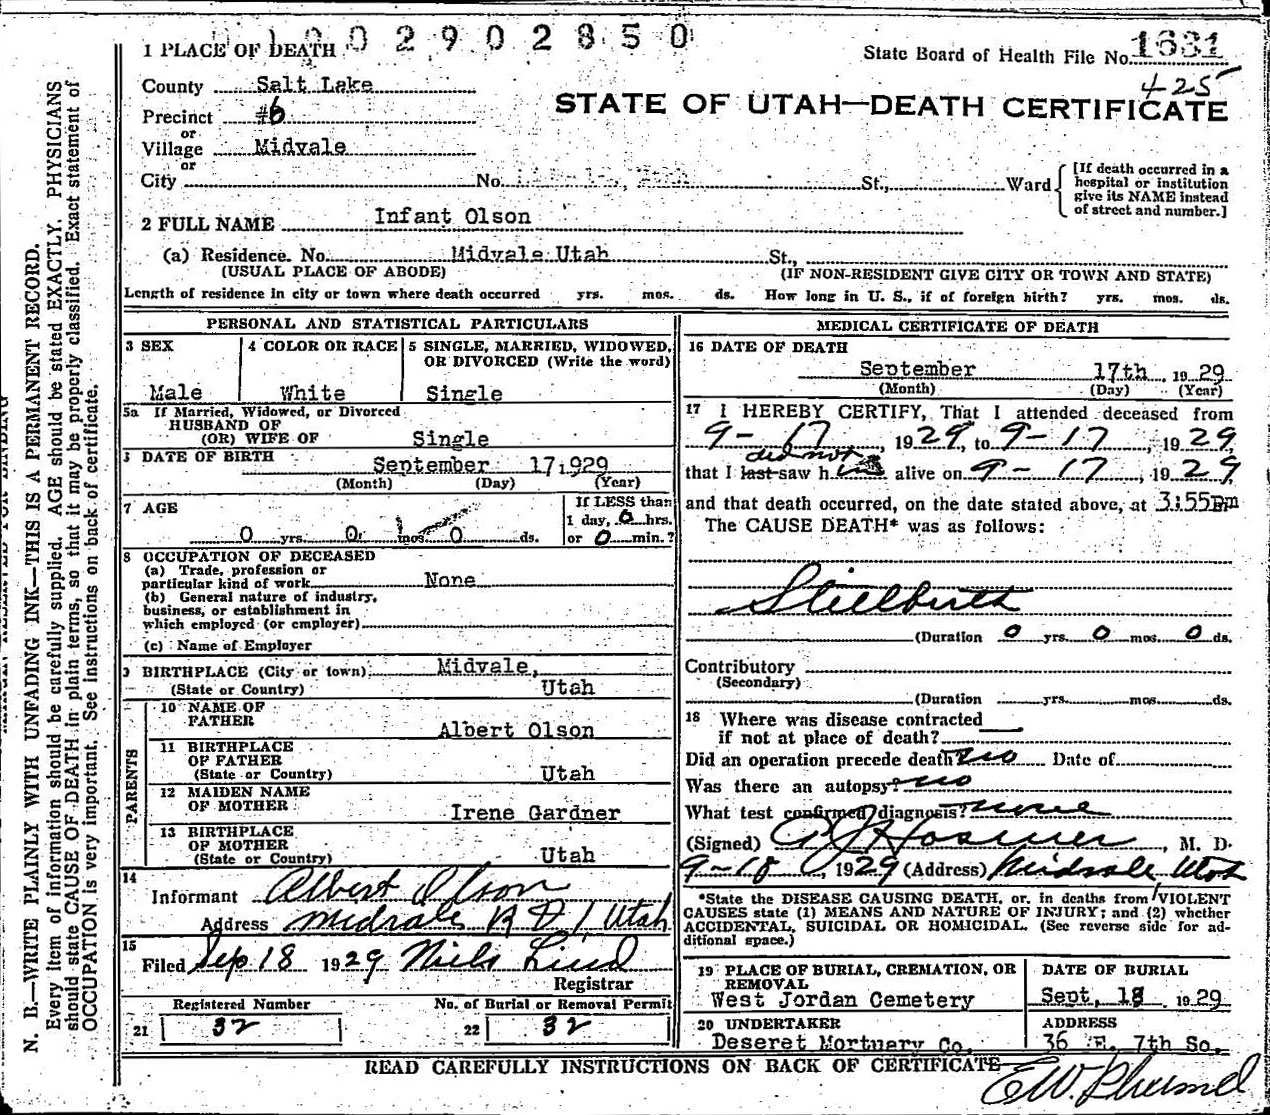 1 PLACE OF DEATH
0 0 2 9 0 2 8 5 0
State Board of Health File No. 1631
425
County Salt Lake
STATE OF UTAH—DEATH CERTIFICATE
Precinct #6
or
Village Midvale
or
City No. St., Ward
[If death occurred in a
hospital or institution
give its NAME instead
of street and number.]
2 FULL NAME Infant Olson
(a) Residence. No. Midvale Utah St.,
(USUAL PLACE OF ABODE) (IF NON-RESIDENT GIVE CITY OR TOWN AND STATE)
Length of residence in city or town where death occurred yrs. mos. ds. How long in U. S., if of foreign birth? yrs. mos. ds.
PERSONAL AND STATISTICAL PARTICULARS
3 SEX 4 COLOR OR RACE 5 SINGLE, MARRIED, WIDOWED,
OR DIVORCED (Write the word)
Male White Single
5a If Married, Widowed, or Divorced
HUSBAND OF
(OR) WIFE OF Single
DATE OF BIRTH
September 17,929
(Month) (Day) (Year)
7 AGE If LESS than
1 day, 0 hrs.
0 yrs. 0 mos. 0 ds. or 0 min.?
8 OCCUPATION OF DECEASED
(a) Trade, profession or
particular kind of work None
(b) General nature of industry,
business, or establishment in
which employed (or employer)
(c) Name of Employer
9 BIRTHPLACE (City or town) Midvale,
(State or Country) Utah
PARENTS
10 NAME OF
FATHER Albert Olson
11 BIRTHPLACE
OF FATHER
(State or Country) Utah
12 MAIDEN NAME
OF MOTHER Irene Gardner
13 BIRTHPLACE
OF MOTHER
(State or Country) Utah
14
Informant Albert Olson
Address Midvale R D 1 Utah
15
Filed Sep 18 1929 Niels Lind
Registrar
Registered Number No. of Burial or Removal Permit
21 32 22 32
MEDICAL CERTIFICATE OF DEATH
16 DATE OF DEATH
September 17th, 1929
(Month) (Day) (Year)
17 I HEREBY CERTIFY, That I attended deceased from
9-17, 1929, to 9-17, 1929,
did not
that I last saw h im alive on 9-17, 1929,
and that death occurred, on the date stated above, at 3:55 Pm
The CAUSE DEATH* was as follows:
Stillbirth
(Duration 0 yrs. 0 mos. 0 ds.
Contributory
(Secondary)
(Duration yrs. mos. ds.
18 Where was disease contracted
if not at place of death?
Did an operation precede death? no Date of
Was there an autopsy? no
What test confirmed diagnosis? none
(Signed) Hosmer, M. D.
9-18, 1929 (Address) Midvale Utah
*State the DISEASE CAUSING DEATH, or, in deaths from VIOLENT
CAUSES state (1) MEANS AND NATURE OF INJURY; and (2) whether
ACCIDENTAL, SUICIDAL OR HOMICIDAL. (See reverse side for ad-
ditional space.)
19 PLACE OF BURIAL, CREMATION, OR DATE OF BURIAL
REMOVAL
West Jordan Cemetery Sept, 18 1929
20 UNDERTAKER ADDRESS
Deseret Mortuary Co. 36 E. 7th So.
READ CAREFULLY INSTRUCTIONS ON BACK OF CERTIFICATE
N. B.—WRITE PLAINLY WITH UNFADING INK—THIS IS A PERMANENT RECORD.
Every item of information should be carefully supplied. AGE should be stated EXACTLY. PHYSICIANS
should state CAUSE OF DEATH in plain terms, so that it may be properly classified. Exact statement of
OCCUPATION is very important. See instructions on back of certificate.